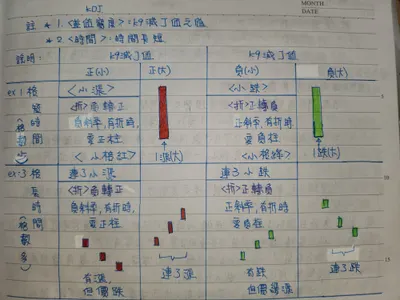 KDJ
MONTH
DATE
註 *1.<差值寬度>:K9減丁值之值
*2.<時間>:時間長短
說明:
K9減丁值
K9減丁值
正(小)
正(大)
負(小)
負(大)
ex:1格
<小漲>
<小跌>
短
<折>負轉正
<折>正轉負
時
負斜率,有折時,
正斜率,有折時,
間
變正柱
變負柱
<小格紅>
1漲(大)
<小格綠>
1跌(大)
ex:3格
連了小漲
連了小跌
長
<折>負轉正
<折>正轉負
時
負斜率,有折時,
正斜率,有折時,
間
變正柱
變負柱
格
數
多
有漲,
但價跌
連了漲
有跌
但價還漲
連了跌
5
10
15